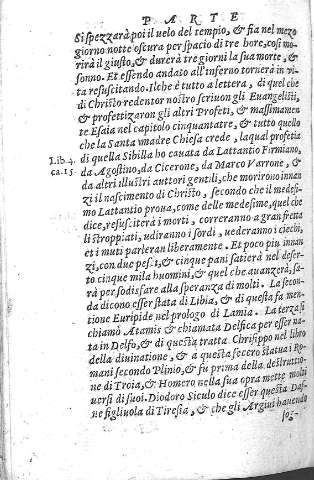 PARTE
Si spezzarà poi il uelo del tempio, & fia nel mezo
giorno notte oscura per spacio di tre hore, cosi mo-
rirà il giusto, & durerà tre giorni la sua morte, &
sonno. Et essendo andato all'inferno tornerà in vi-
ta resuscitando. Ilche è tutto a lettera, di quel che
di Christo redentor nostro scriuon gli Euangelisti,
& profettizaron gli altri Profeti, & massimamen
te Esaia nel capitolo cinquantatre, & tutto quello
che la Santa madre Chiesa crede, laqual profetia
Lib. 4. di quella Sibilla ho cauata da Lattantio Firmiano,
ca. 15. da Agostino, da Cicerone, da Marco Varrone, &
da altri illustri auttori gentili, che morirono innan
zi il nascimento di Christo, secondo che il medesi-
mo Lattantio proua, come delle medesime, quel che
dice, resusciterà i morti, correranno a gran fretta
li stroppiati, udiranno i sordi, uederanno i ciechi,
et i muti parleran liberamente. Et poco piu innan
zi, con due pesci, & cinque pani satierà nel deser-
to cinque mila huomini, & quel che auanzerà, sa-
rà per sodisfare alla speranza di molti. La secon-
da dicono esser stata di Libia, & di questa fa men-
tione Euripide nel prologo di Lamia. La terza si
chiamò Atamis & chiamata Delfica per esser na-
ta in Delfo, & di questa tratta Chrisippo nel libro
della diuinatione, & a questa fecero statua i Ro-
mani secondo Plinio, & fu prima della destruttio-
ne di Troia, & Homero nella sua opra mette molti
uersi di suoi. Diodoro Siculo dice esser questa Daf-
ne figliuola di Tiresia, & che gli Argiui hauendo